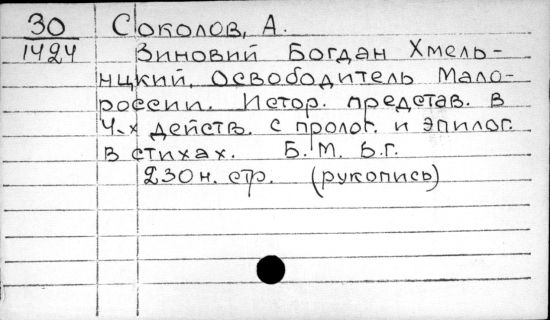 30 Соколов, А.
1424 Зиновий Богдан Хмель-
ницкий, Освободитель Мало-
россии. Истор. представ. в
4-х действ. с пролог. и эпилог.
в стихах. Б. М. Б.г.
230 н. стр. (рукопись)